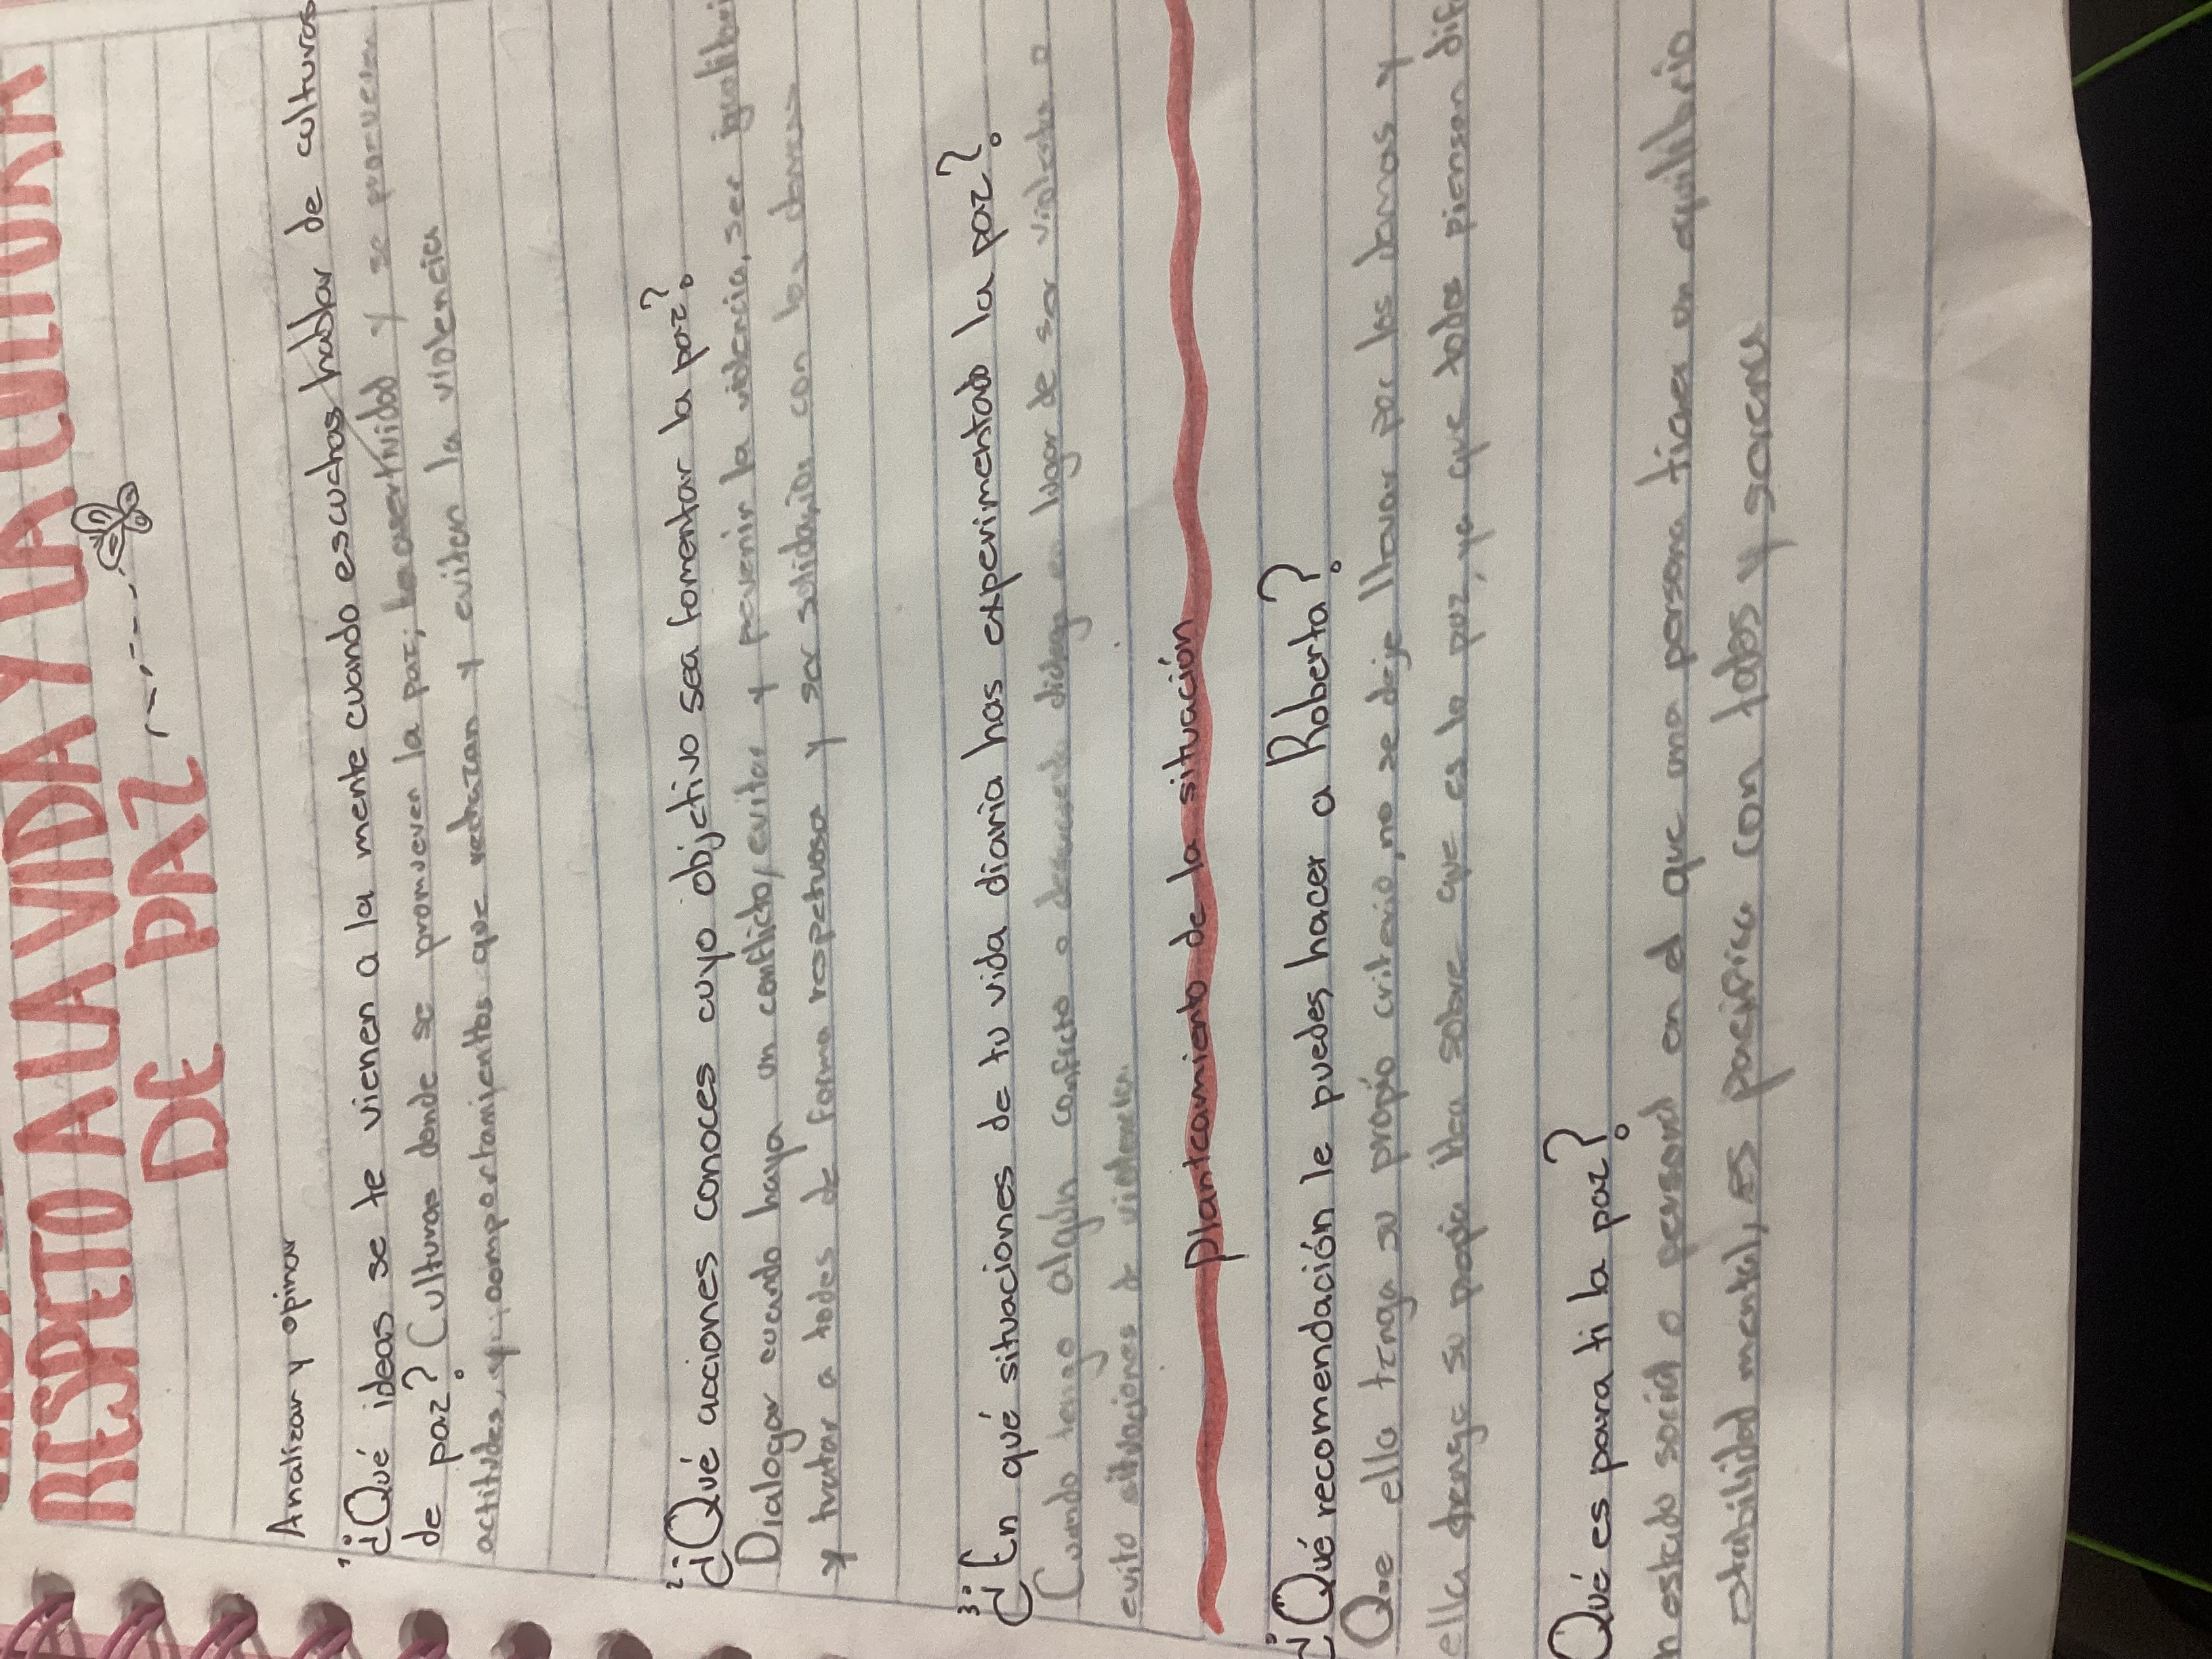 RESPETO A LA VIDA Y LA CULTURA
DE PAZ
Analizar y opinar
1. ¿Qué ideas se te vienen a la mente cuando escuchas hablar de culturas
de paz? Culturas donde se promueven la paz, la asertividad y se
actitudes, comportamientos que rechazan y evitan la violencia
2. ¿Qué acciones conoces cuyo objetivo sea fomentar la paz?
Dialogar cuando haya un conflicto, evitar y pevenir la violencia, ser
y tratar a todes de forma respetuosa y ser con los demas
3. ¿En qué situaciones de tu vida diaria has experimentado la paz?
Cuando tengo algún conficto o desacuerdo dialogo en lugar de ser violenta o
evito situaciones de violencia
planteamiento de la situación
¿Qué recomendación le puedes hacer a Roberta?
Que ella tenga su propio criterio, no se deje llevar por los demas y
ella tenga su propia idea sobre que es la paz, ya que todos piensan dif
Qué es para ti la paz?
n estado social o personal en el que una persona tiene un equilibrio
estabilidad mental, es pacifica con todos y